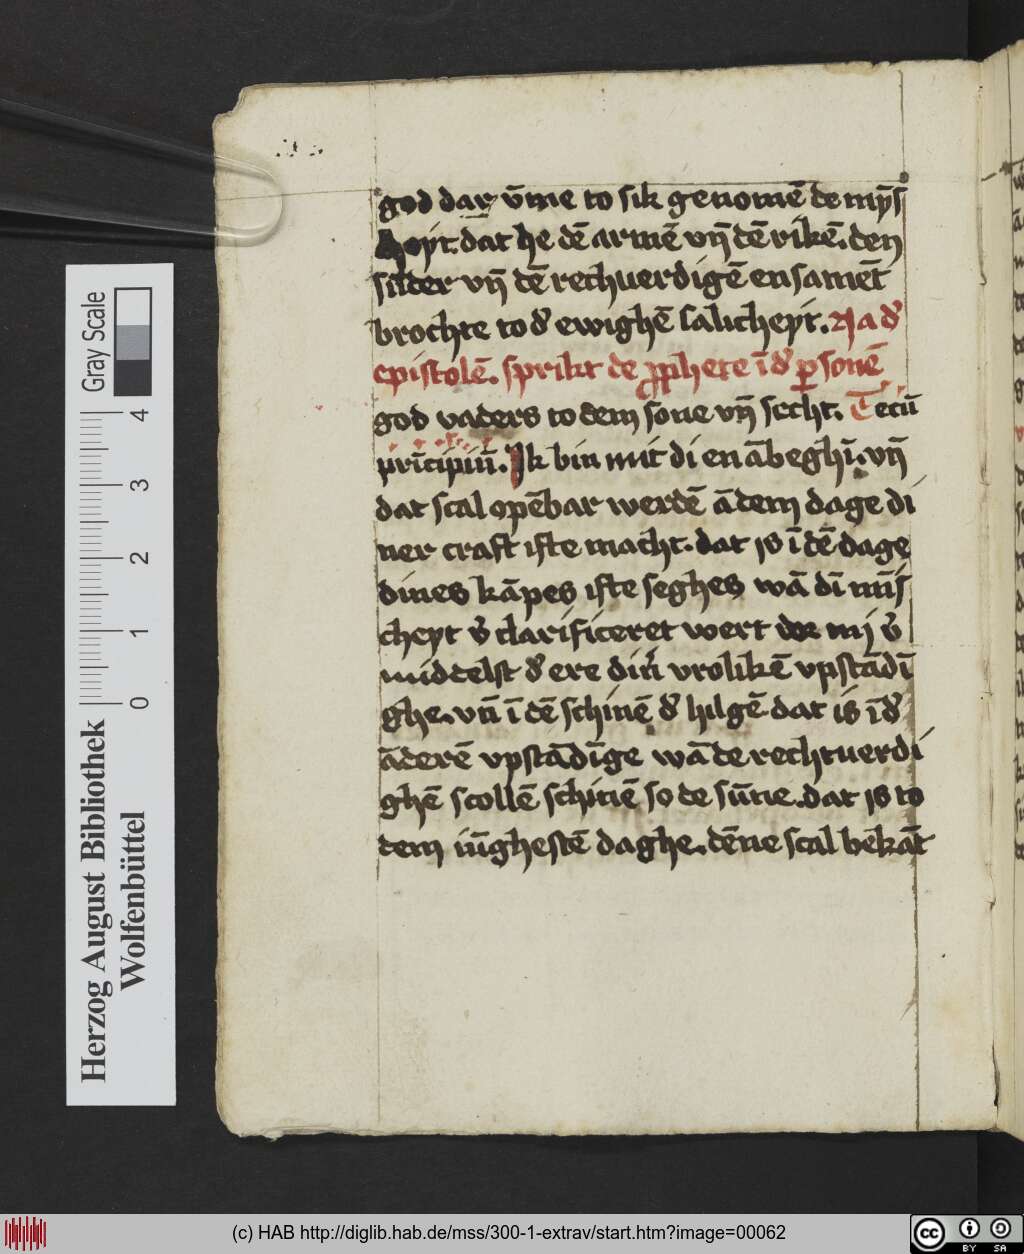 god dar v̄me to sik genomē de mȳs
heyt. dat he dē armē vn̄ dē rikē. den
sūder vn̄ dē rechuerdigē en samēt
brochte to dʾ ewighē salicheyt. Na dʾ
epistolē. sprikt de ꝓphete ī dʾ ꝑsonē
god vaders to dem sone vn̄ secht. Tecū
prīcipiū. Ik bin mit di en ābeghī. vn̄
dat scal opēbar werdē ā dem dage di
ner craft ifte macht. dat is ī dē dage
dines kāpes ifte seghes wā dī mīs
cheyt vʾ clarificeret wert vor mi vʾ
middelst dʾ ere dinʾ vrolikē vpstādī
ghe. vn̄ ī dē schinē dʾ hilgē dat is ī dʾ
āderē vpstādīge wā de rechtuerdi
ghē scollē schinē so de sūne. dat is to
dem iūghestē daghe. dēne scal bekāt
Gray Scale
4 3 2 1 0
Herzog August Bibliothek
Wolfenbüttel
(c) HAB http://diglib.hab.de/mss/300-1-extrav/start.htm?image=00062
cc BY SA